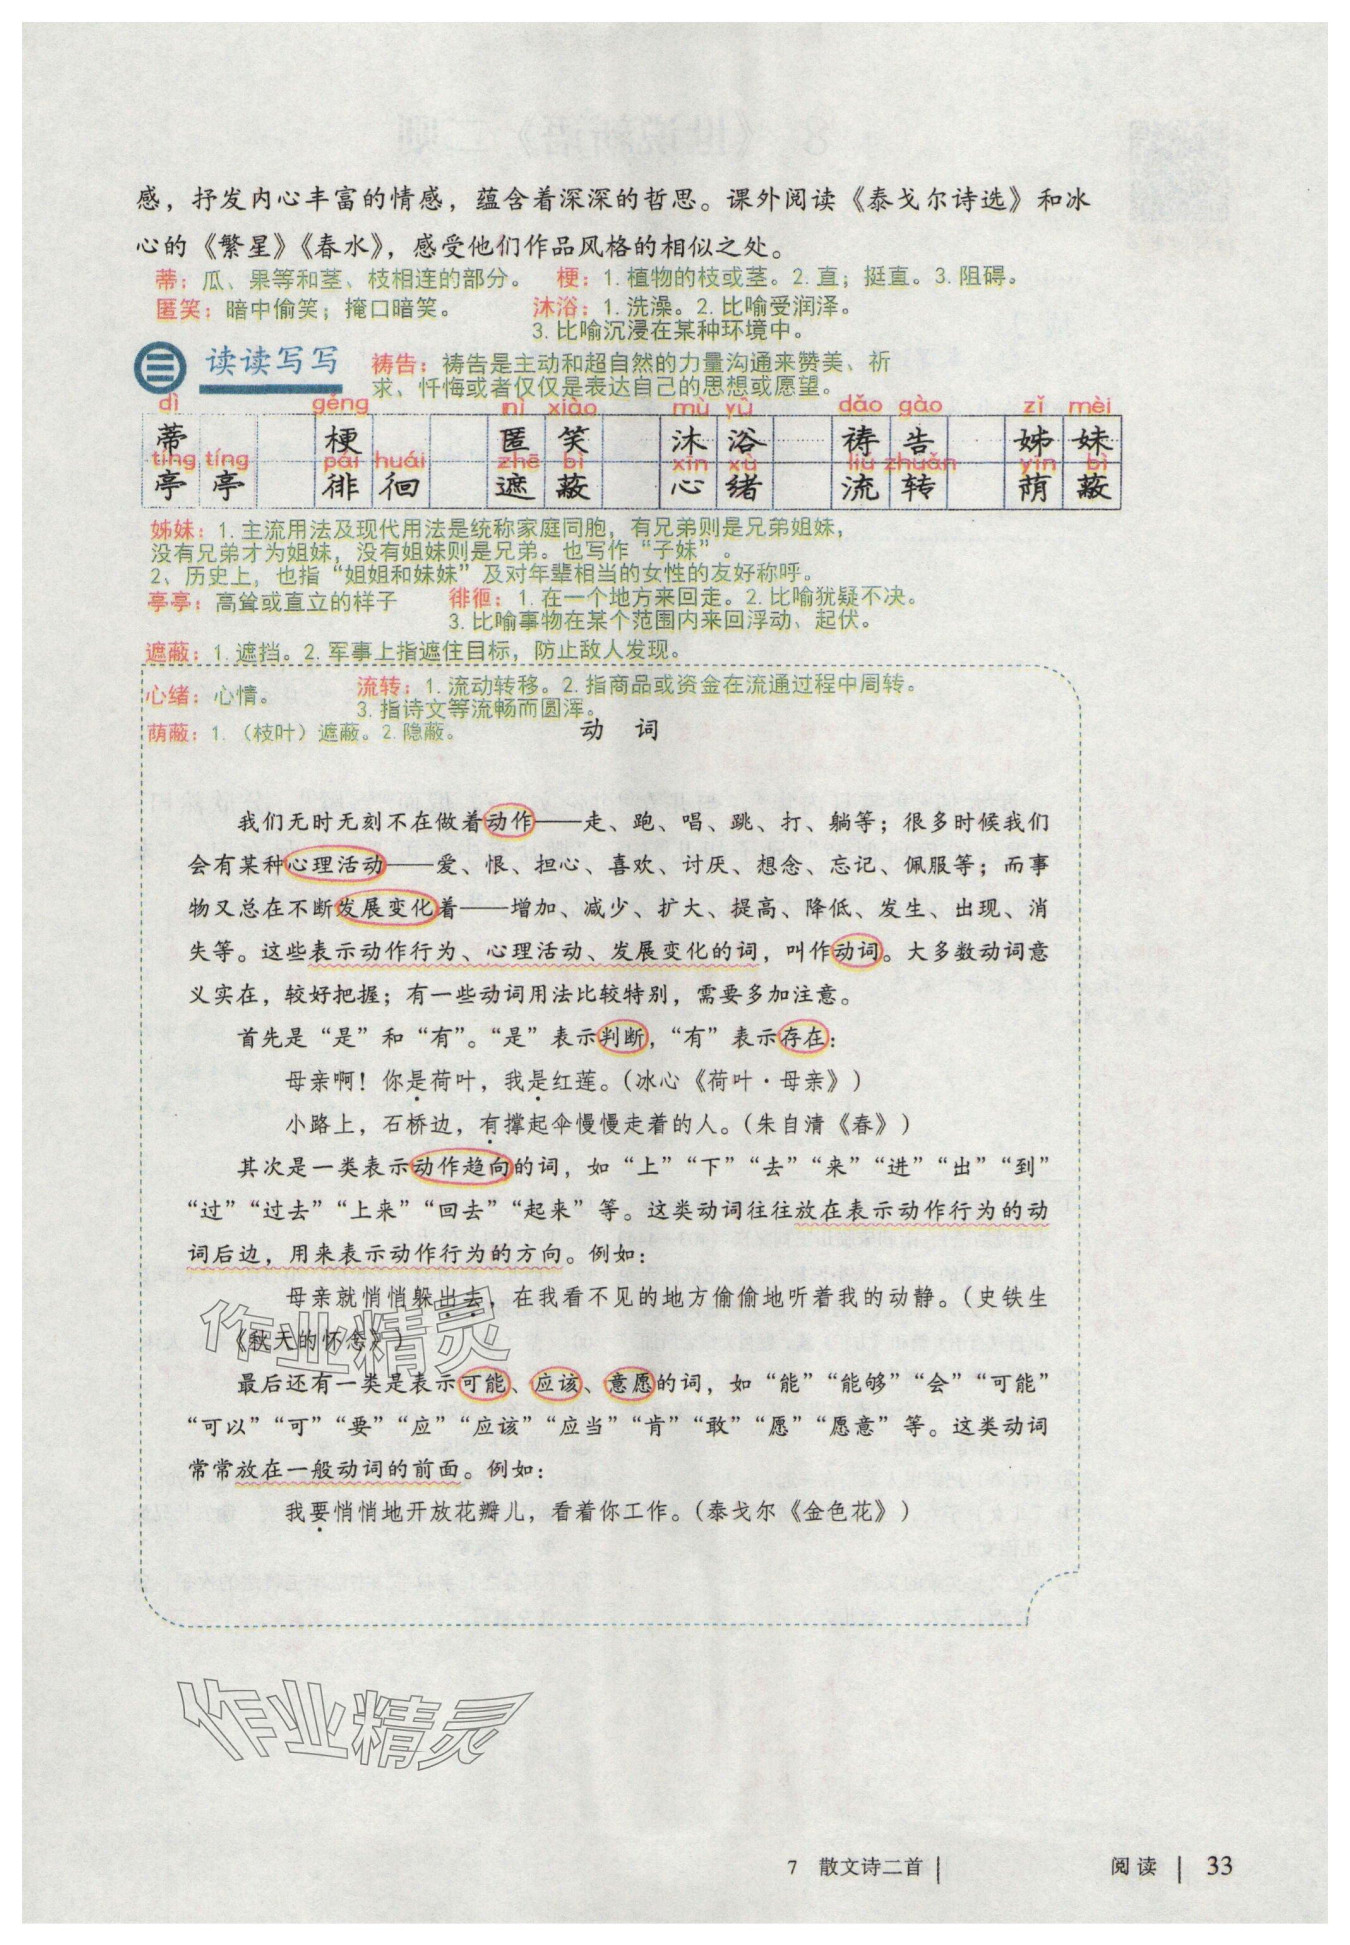 感，抒发内心丰富的情感，蕴含着深深的哲思。课外阅读《泰戈尔诗选》和冰
心的《繁星》《春水》，感受他们作品风格的相似之处。
蒂：瓜、果等和茎、枝相连的部分。 梗：1.植物的枝或茎。2.直；挺直。3.阻碍。
匿笑：暗中偷笑；掩口暗笑。 沐浴：1.洗澡。2.比喻受润泽。
3.比喻沉浸在某种环境中。
三 读读写写 祷告：祷告是主动和超自然的力量沟通来赞美、祈
求、忏悔或者仅仅是表达自己的思想或愿望。
dì gěng nì xiào mù yù dǎo gào zǐ mèi
蒂 梗 匿笑 沐浴 祷告 姊妹
tíng tíng pái huái zhē bì xīn xù liú zhuǎn yìn bì
亭亭 徘徊 遮蔽 心绪 流转 荫蔽
姊妹：1.主流用法及现代用法是统称家庭同胞，有兄弟则是兄弟姐妹，
没有兄弟才为姐妹，没有姐妹则是兄弟。也写作“子妹”。
2、历史上，也指“姐姐和妹妹”及对年辈相当的女性的友好称呼。
亭亭：高耸或直立的样子 徘徊：1.在一个地方来回走。2.比喻犹疑不决。
3.比喻事物在某个范围内来回浮动、起伏。
遮蔽：1.遮挡。2.军事上指遮住目标，防止敌人发现。
心绪：心情。 流转：1.流动转移。2.指商品或资金在流通过程中周转。
3.指诗文等流畅而圆浑。
荫蔽：1.（枝叶）遮蔽。2.隐蔽。
动 词
我们无时无刻不在做着动作——走、跑、唱、跳、打、躺等；很多时候我们
会有某种心理活动——爱、恨、担心、喜欢、讨厌、想念、忘记、佩服等；而事
物又总在不断发展变化着——增加、减少、扩大、提高、降低、发生、出现、消
失等。这些表示动作行为、心理活动、发展变化的词，叫作动词。大多数动词意
义实在，较好把握；有一些动词用法比较特别，需要多加注意。
首先是“是”和“有”。“是”表示判断，“有”表示存在：
母亲啊！你是荷叶，我是红莲。（冰心《荷叶·母亲》）
小路上，石桥边，有撑起伞慢慢走着的人。（朱自清《春》）
其次是一类表示动作趋向的词，如“上”“下”“去”“来”“进”“出”“到”
“过”“过去”“上来”“回去”“起来”等。这类动词往往放在表示动作行为的动
词后边，用来表示动作行为的方向。例如：
母亲就悄悄躲出去，在我看不见的地方偷偷地听着我的动静。（史铁生
《秋天的怀念》）
作业精灵
最后还有一类是表示可能、应该、意愿的词，如“能”“能够”“会”“可能”
“可以”“可”“要”“应”“应该”“应当”“肯”“敢”“愿”“愿意”等。这类动词
常常放在一般动词的前面。例如：
我要悄悄地开放花瓣儿，看着你工作。（泰戈尔《金色花》）
作业精灵
7 散文诗二首 | 阅读 | 33